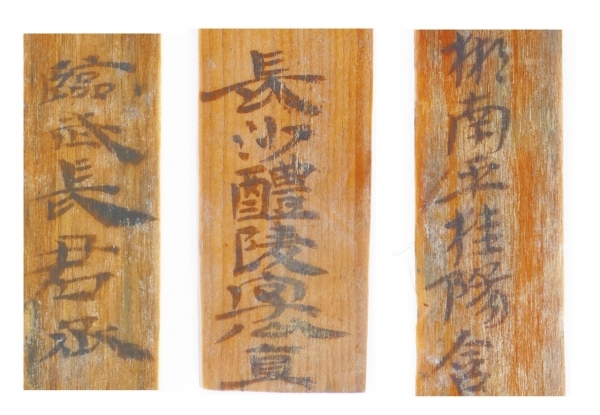 臨武長君丞
長沙醴陵
郴南平桂陽含